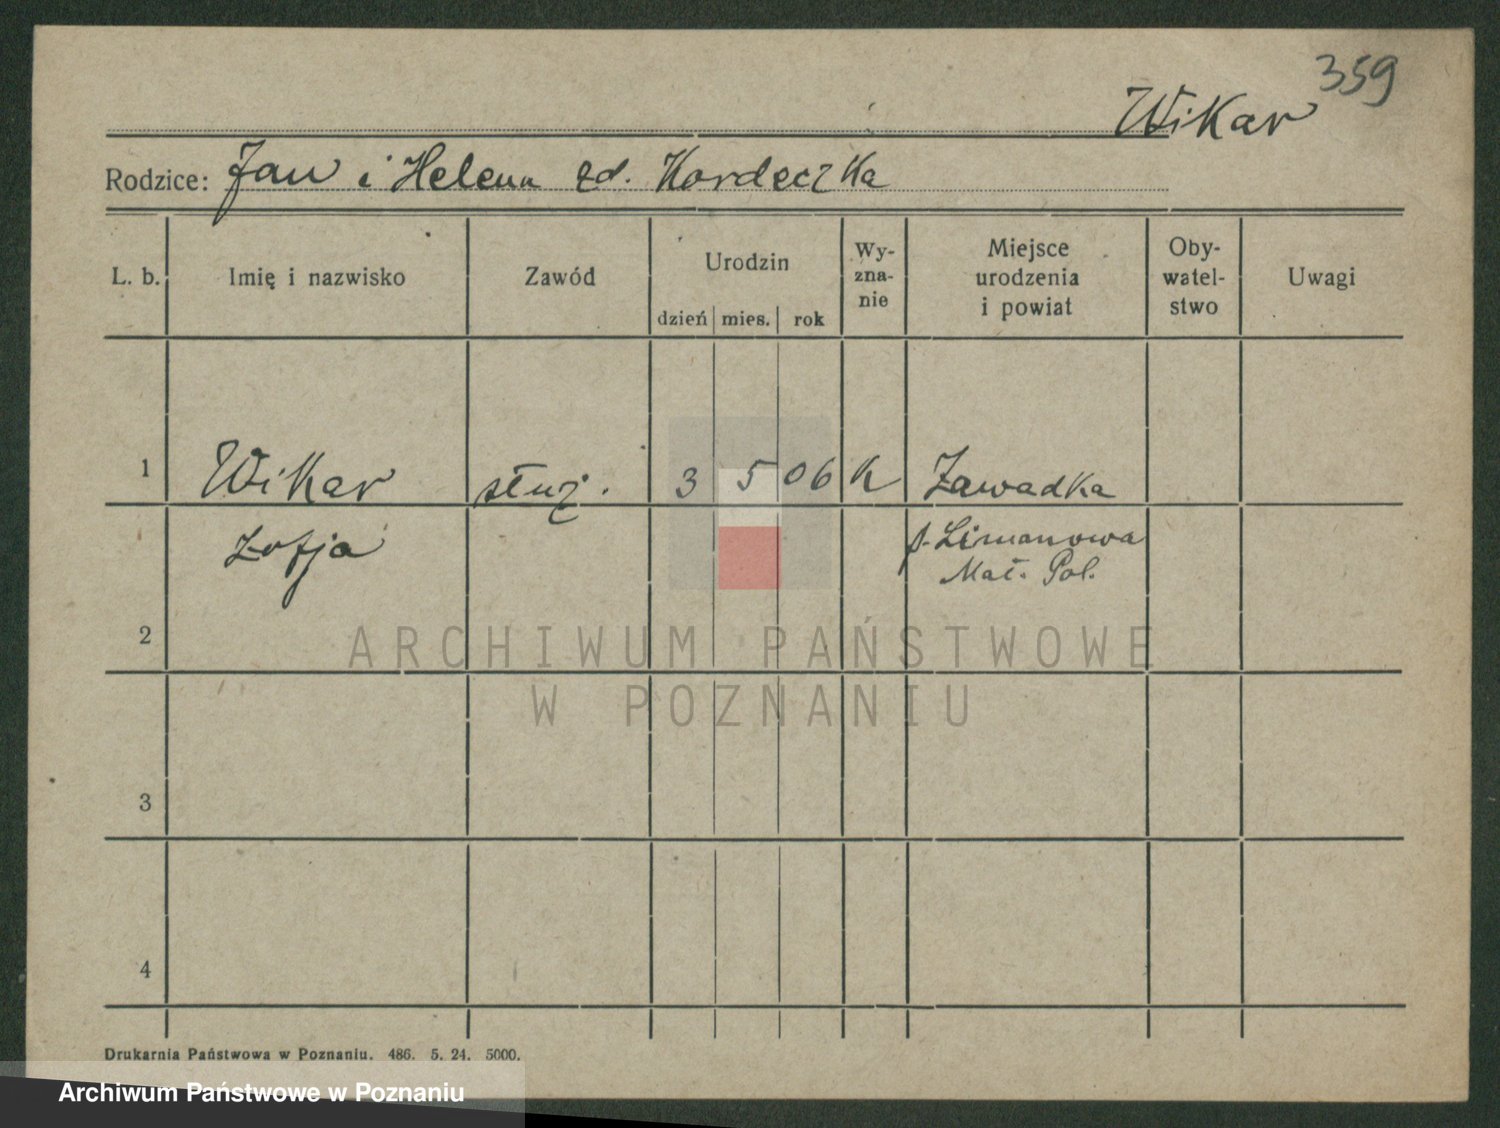 359
Wikar
Rodzice: Jan i Helena zd. Kordeczka
L. b.
Imię i nazwisko
Zawód
Urodzin
dzień mies. rok
Wy-
zna-
nie
Miejsce
urodzenia
i powiat
Oby-
watel-
stwo
Uwagi
1 Wikar służ. 3 5 06 k Zawadka
Zofja p. Limanowa
Mał. Pol.
2
3
4
ARCHIWUM PAŃSTWOWE
W POZNANIU
Drukarnia Państwowa w Poznaniu. 486. 5. 24. 5000.
Archiwum Państwowe w Poznaniu